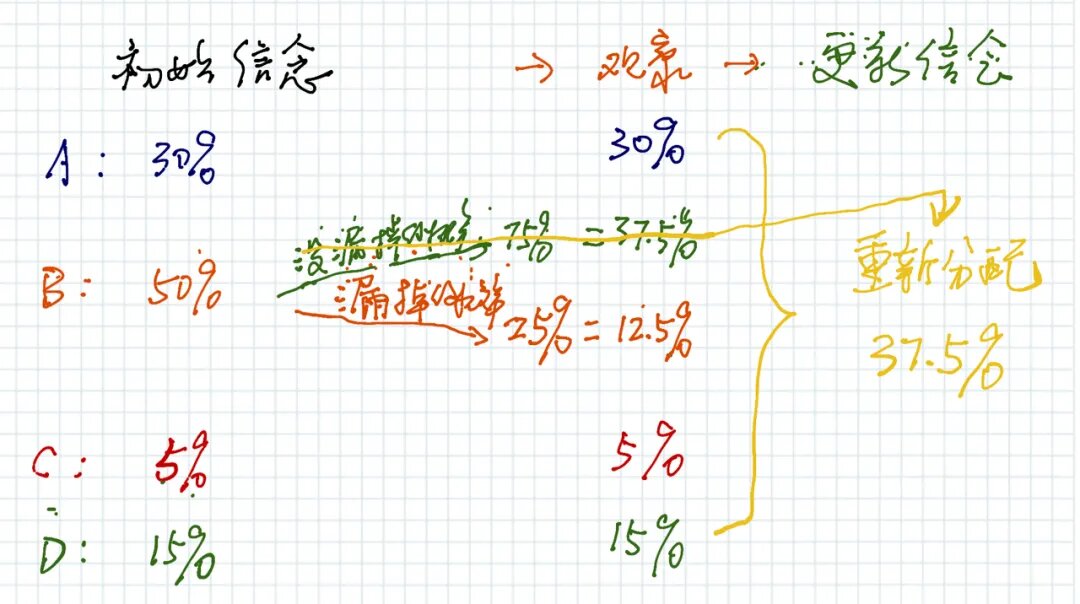 初始信念 → 观察 → 更新信念
A: 30% 30%
没漏掉的概率: 75% = 37.5%
重新分配
B: 50%
漏掉的概率 25% = 12.5%
37.5%
C: 5% 5%
D: 15% 15%